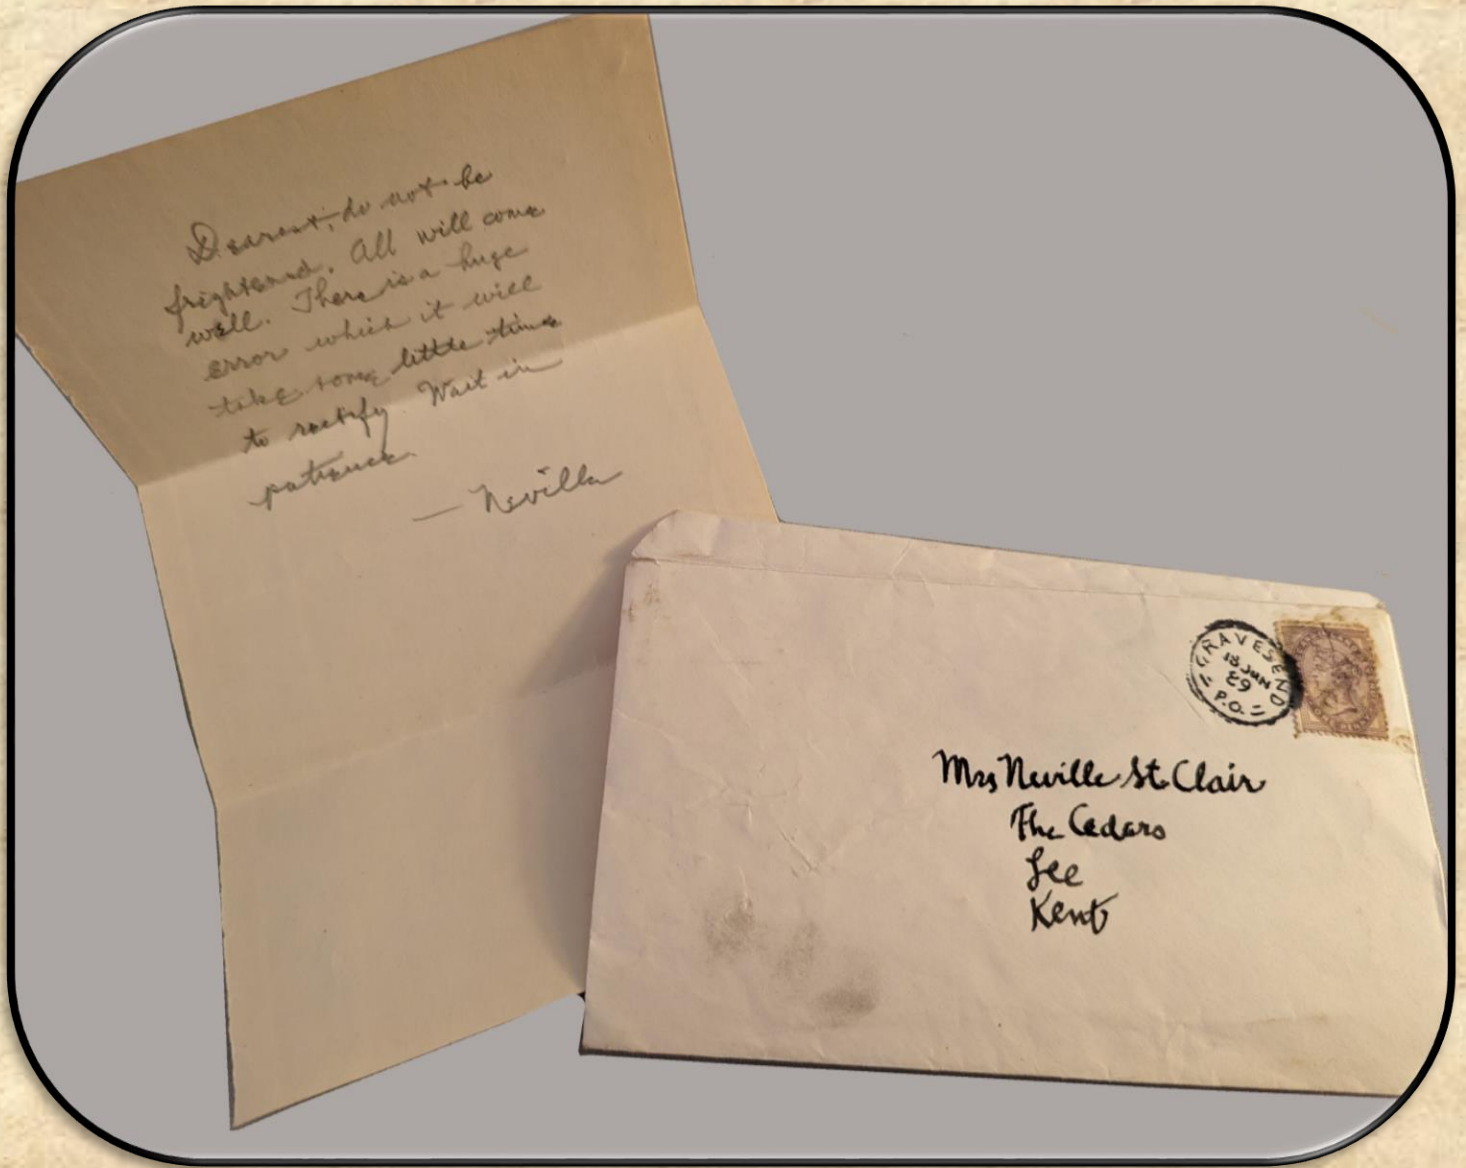 Dearest, do not be
frightened. All will come
well. There is a huge
error which it will
take some little time
to rectify. Wait in
patience.
— Neville
GRAVESEND
18 JUN
89
P.O.
Mrs Neville St. Clair
The Cedars
Lee
Kent